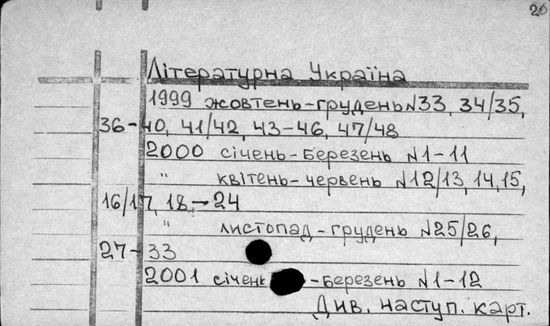 20
Літературна Україна
1999 жовтень-грудень N33, 34/35,
36-40, 41/42, 43-46, 47/48
2000 січень-березень N1-11
" квітень-червень N12/13, 14, 15,
16/17, 18-24
" листопад-грудень N25/26,
27-33
2001 січень-березень N1-12
Див. наступ. карт.